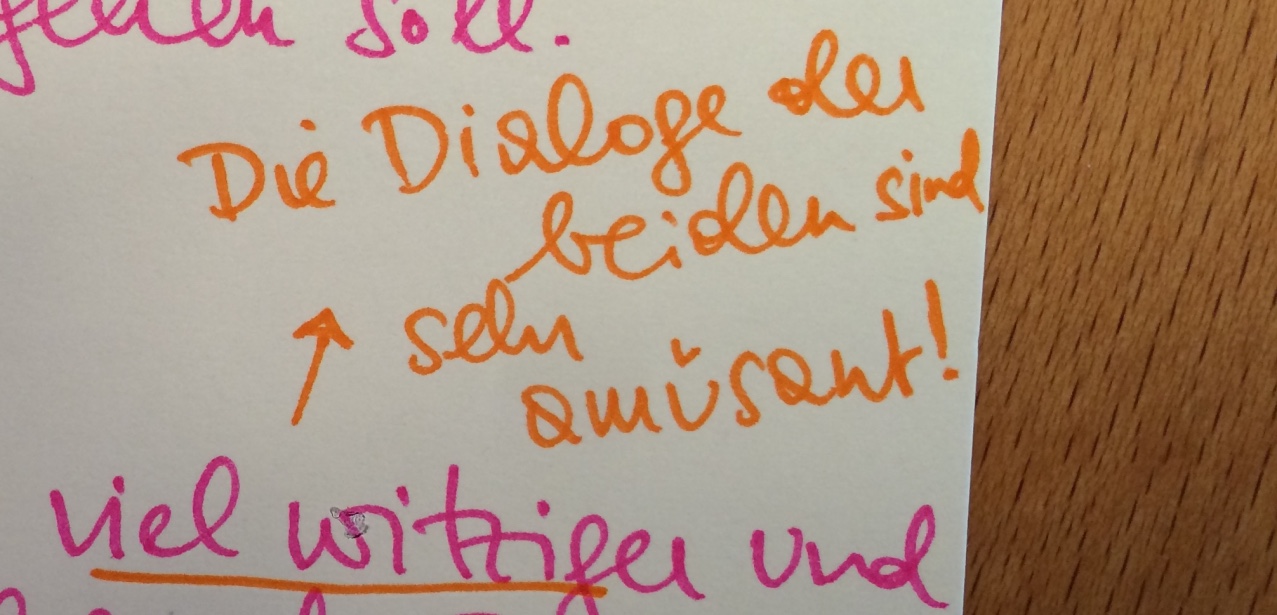 soll.
Die Dialoge der
beiden sind
sehr
amüsant!
viel witziger und